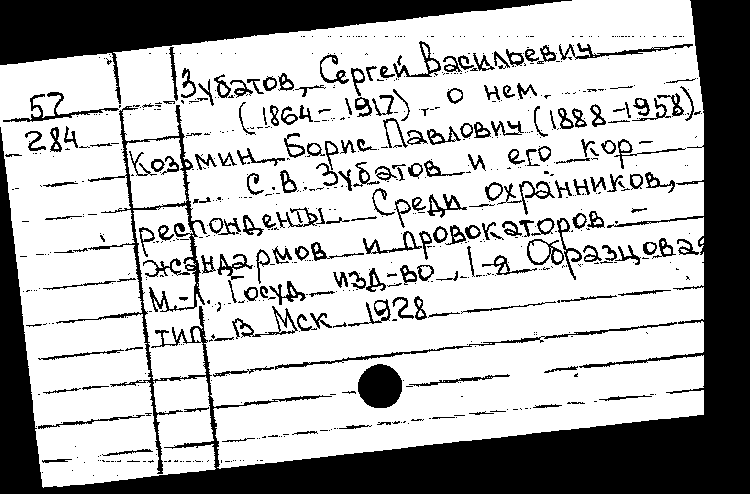 57
284
Зубатов, Сергей Васильевич
(1864-1917), о нем.
Козьмин, Борис Павлович (1888-1958)
... С.В. Зубатов и его кор-
респонденты. Среди охранников,
жандармов и провокаторов. -
М.-Л., Госуд. изд-во, 1-я Образцовая
тип. в Мск. 1928